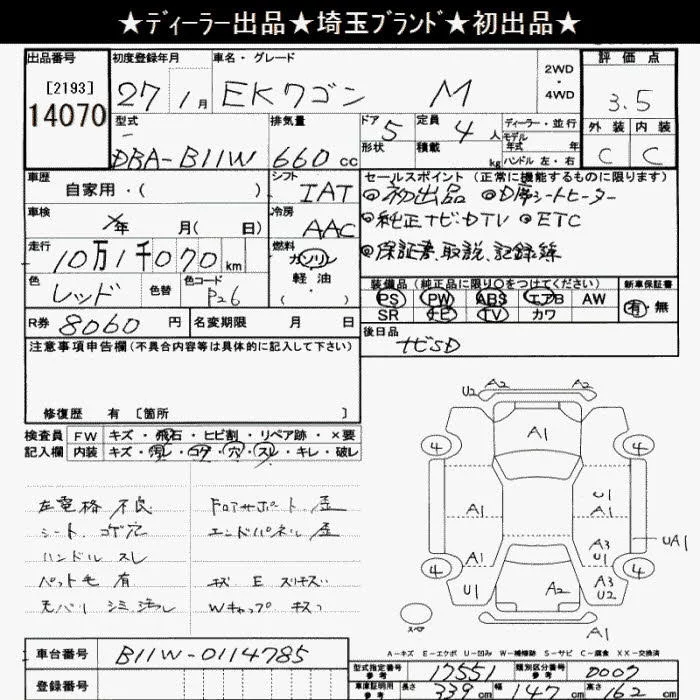 ★ディーラー出品★埼玉ブランド★初出品★
出品番号 初度登録年月 車名・グレード 2WD・4WD 評価点
[2193]
14070 27 1月 EKワゴン M 3.5
型式 排気量 ドア 定員 ディーラー・並行 外装 内装
DBA-B11W 660cc 5 4人 モデル年式 年式 C C
形状 積載 kg ハンドル 左・右
車歴 シフト セールスポイント(正常に機能するものに限ります)
自家用・( ) IAT ◎初出品 ◎D席シートヒーター
車検 年 月( 日) 冷房 AAC ◎純正ナビ・DTV ◎ETC
走行 10万1千070km 燃料 ガソリン ◎保証書、取説、記録簿
軽油
・( )
色 レッド 色替 色コード P26
装備品(純正品に限り○をつけてください) 新車保証書
PS PW ABS エアB AW 有・無
SR ナビ TV カワ
R券 8060円 名変期限 月 日 後日品
ナビSD
注意事項申告欄(不具合内容等は具体的に記入して下さい)
修復歴 有 〔箇所 〕
検査員 FW キズ・飛石・ヒビ割・リペア跡・×要
記入欄 内装 キズ・汚レ・コゲ・穴・スレ・キレ・破レ
左電格 不良 ドロアサポート 歪
シート コゲ穴 エンドパネル 歪
ハンドル スレ
ペット毛 有 キズ E スリキズ
天バリ シミ汚レ Wキャップ キズ
U2 A2 A2
A1
4 4
A1 U1
A1
A1 A3 UA1
U1
4 4
U1 A2 A3
U2
スペア A1
A-キズ E-エクボ U-凹み W-補修跡 S-サビ C-腐食 XX-交換済
車台番号 B11W-0114785
型式指定番号 参考 17551 類別区分番号 参考 0007
登録番号 車庫証明用 参考 長さ 339cm 幅 147cm 高さ 162cm